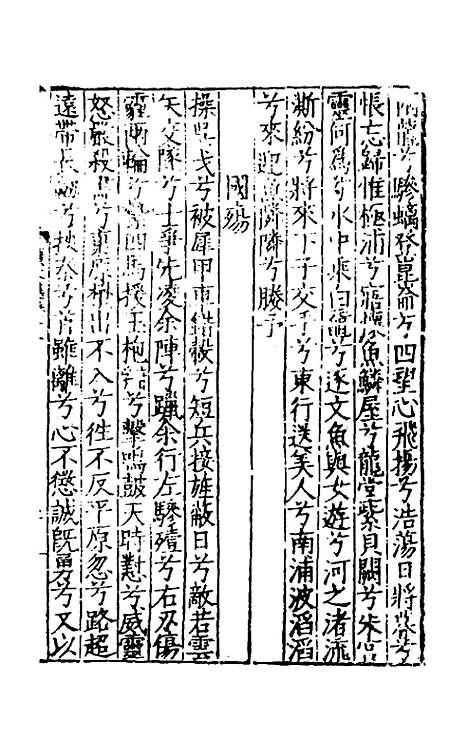 兩龍兮驂螭登崑崙兮四望心飛揚兮浩蕩日將暮兮
悵忘歸惟極浦兮寤懷魚鱗屋兮龍堂紫貝闕兮朱宮
靈何為兮水中乘白黿兮逐文魚與女遊兮河之渚流
澌紛兮將來下子交手兮東行送美人兮南浦波滔滔
兮來迎魚隣隣兮媵予
國殤
操吳戈兮被犀甲車錯轂兮短兵接旌蔽日兮敵若雲
矢交隊兮士爭先凌余陣兮躐余行左驂殪兮右刃傷
霾兩輪兮縶四馬援玉枹兮擊鳴鼓天時懟兮威靈
怒嚴殺盡兮棄原壄出不入兮徃不反平原忽兮路超
遠帶長劍兮挾秦弓首雖離兮心不懲誠旣勇兮又以